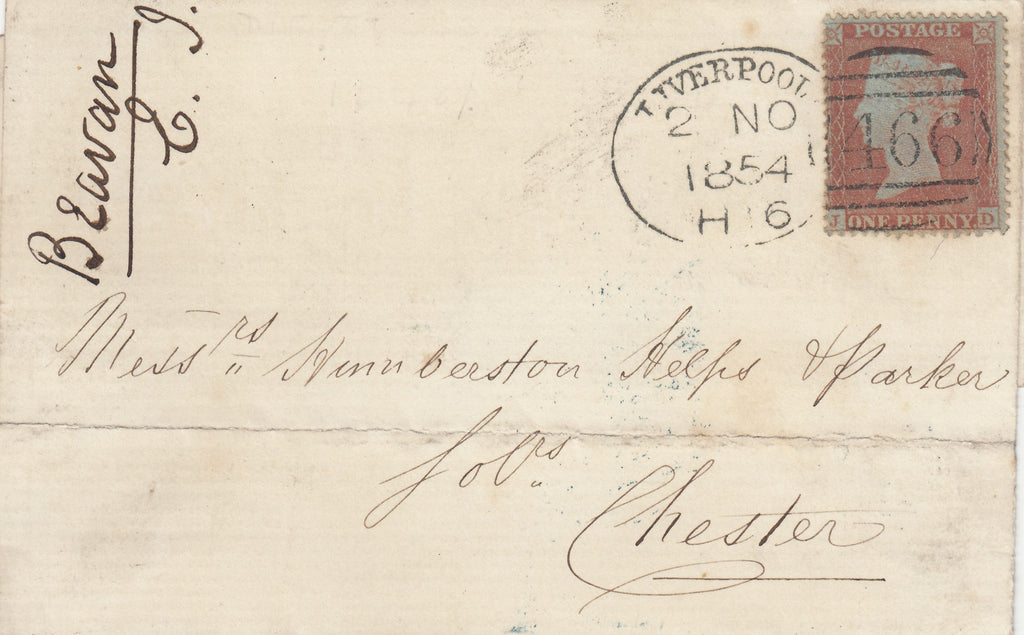 Beavan
E. J.
LIVERPOOL
2 NO
1854
H 6
POSTAGE
466
J ONE PENNY D
Messrs Humberston Helps & Parker
Solrs
Chester